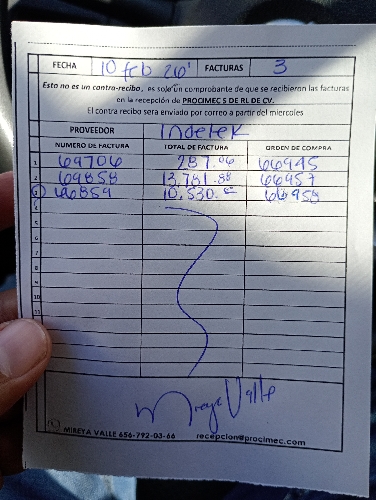 FECHA 10 feb 26' FACTURAS 3
Esto no es un contra-recibo, es solo un comprobante de que se recibieron las facturas
en la recepción de PROCIMEC S DE RL DE CV.
El contra recibo sera enviado por correo a partir del miercoles
PROVEEDOR Indelek
NUMERO DE FACTURA TOTAL DE FACTURA ORDEN DE COMPRA
1 69706 787.06 66945
2 69858 13,781.88 66957
3 69859 10,530. 66958
5
6
7
8
9
10
11
Mireya Valle
MIREYA VALLE 656-792-03-66 recepcion@procimec.com